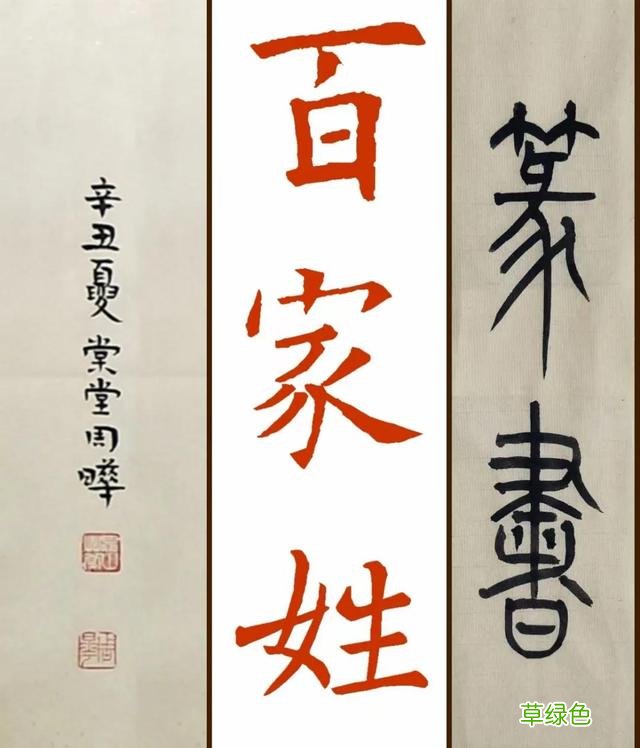 篆書
百家姓
辛丑夏棠堂周曄
草绿色